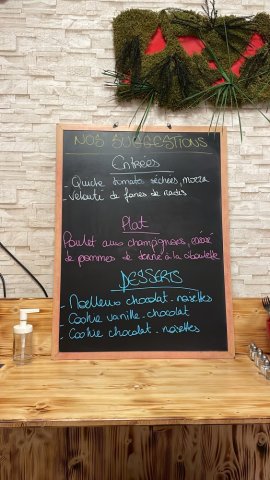 NOS SUGGESTIONS
Entrées
- Quiche tomates séchées, mozza
- Velouté de fanes de radis
Plat
Poulet aux champignons, écrasé
de pommes de terre à la ciboulette
DESSERTS
- Moelleux chocolat - noisettes
- Cookie vanille - chocolat
- Cookie chocolat - noisettes